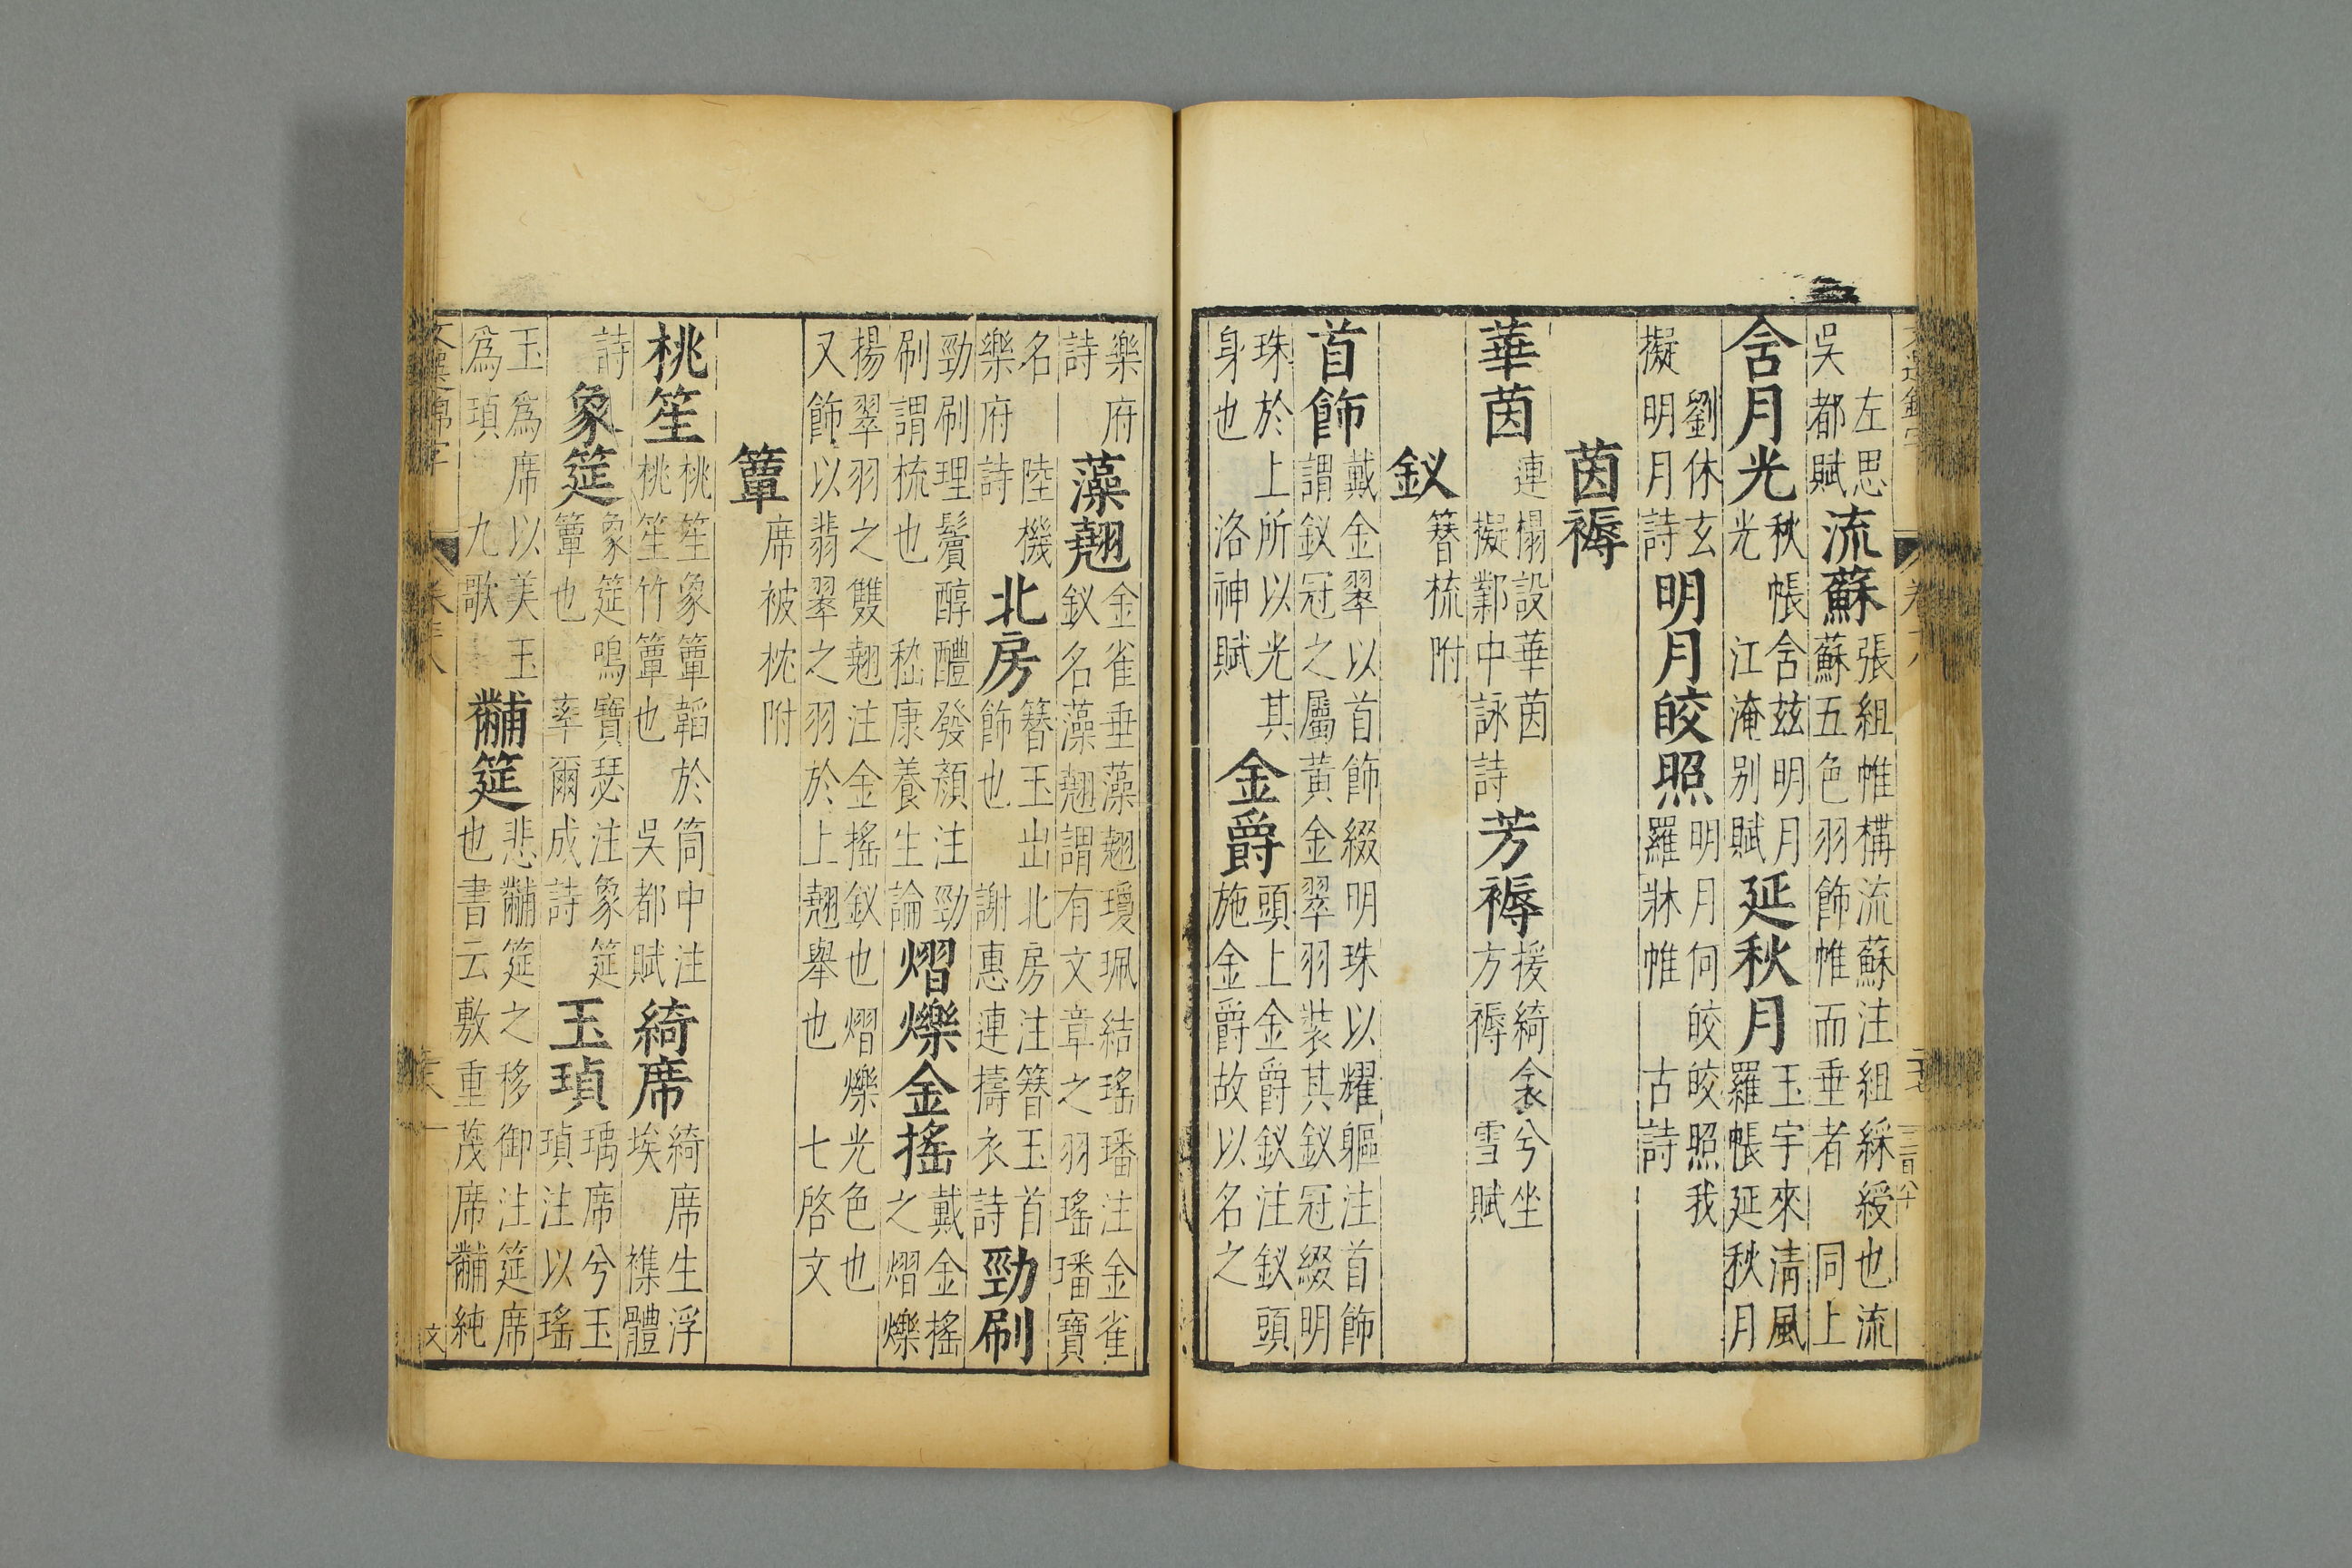 左思
吳都賦
流蘇
張組帷構流蘇注組綵綬也流
蘇五色羽飾帷而垂者 同上
含月光
秋帳含茲明月
光 江淹别賦
延秋月
玉宇來清風
羅帳延秋月
劉休玄
擬明月詩
明月皎照
明月何皎皎照我
羅牀帷 古詩
茵褥
華茵
連榻設華茵
擬鄴中詠詩
芳褥
援綺衾兮坐
方褥 雪賦
釵
簪梳附
首飾
戴金翠以首飾綴明珠以耀軀注首飾
謂釵冠之屬黃金翠羽裝其釵冠綴明
珠於上所以光其
身也 洛神賦
金爵
頭上金爵釵注釵頭
施金爵故以名之
樂府
詩
藻翹
金雀垂藻翹瓊珮結瑤璠注金雀
釵名藻翹謂有文章之羽瑤璠寶
名 陸機
樂府詩
北房
簪玉出北房注簪玉首
飾也 謝惠連擣衣詩
勁刷
勁刷理鬢醇醴發顏注勁
刷謂梳也 嵇康養生論
熠爍金搖
戴金搖
之熠爍
揚翠羽之雙翹注金搖釵也熠爍光色也
又飾以翡翠之羽於上翹舉也 七啓文
簟
席被枕附
桃笙
桃笙象簟韜於筒中注
桃笙竹簟也 吳都賦
綺席
綺席生浮
埃 襍體
詩
象筵
象筵鳴寶瑟注象筵
簟也 率爾成詩
玉瑱
瑀席兮玉
瑱注以瑤
玉爲席以美玉
爲瑱 九歌
黼筵
悲黼筵之移御注筵席
也書云敷重蔑席黼純